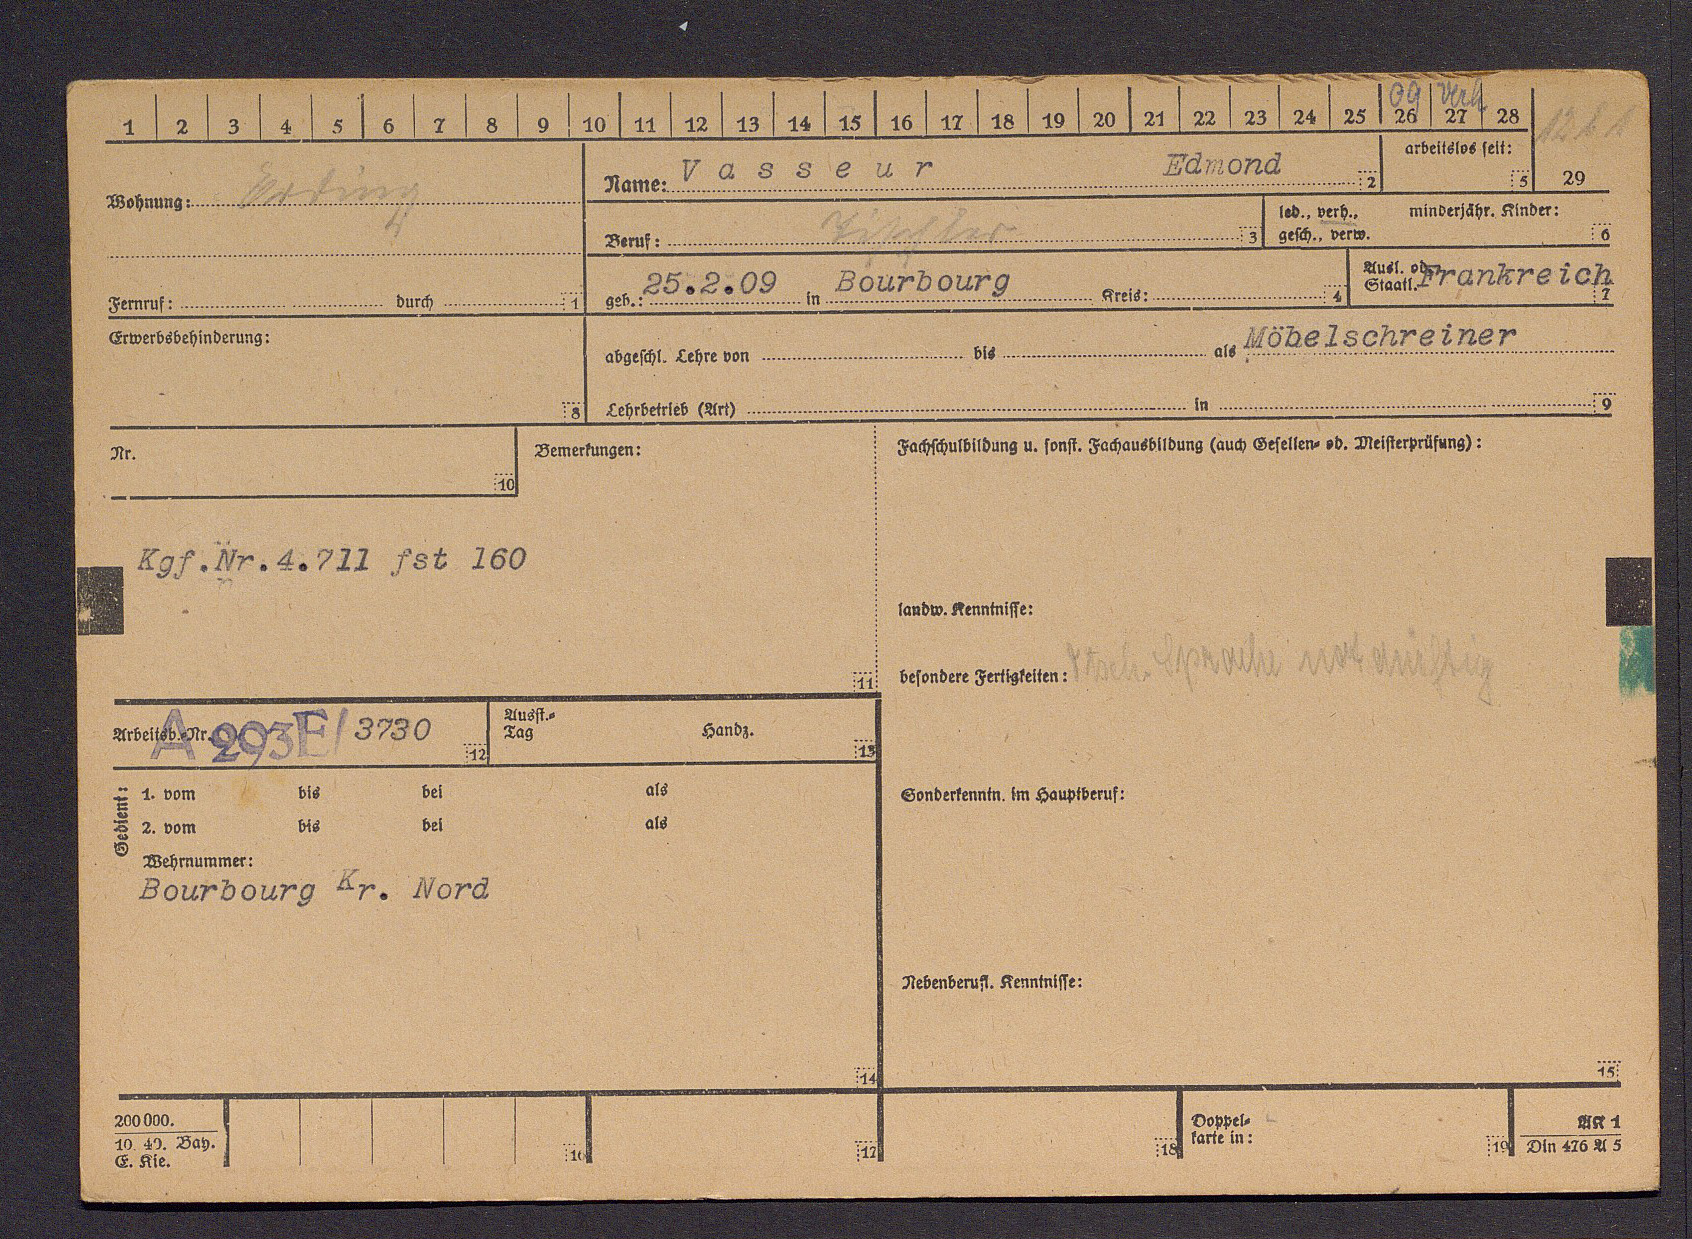 1 2 3 4 5 6 7 8 9 10 11 12 13 14 15 16 17 18 19 20 21 22 23 24 25 26 27 28
09 verh
12 b 1
Wohnung: Erding
Name: Vasseur Edmond 2
arbeitslos seit: 5
29
Beruf: Tischler 3
led., verh., minderjähr. Kinder:
gesch., verw. 6
Fernruf: durch 1
geb.: 25.2.09 in Bourbourg Kreis: 4
Ausl. od. Staatl. Frankreich 7
Erwerbsbehinderung: 8
abgeschl. Lehre von bis als Möbelschreiner
Lehrbetrieb (Art) in 9
Nr. 10
Bemerkungen:
Kgf.Nr.4.711 fst 160
11
Fachschulbildung u. sonst. Fachausbildung (auch Gesellen- od. Meisterprüfung):
landw. Kenntnisse:
besondere Fertigkeiten: dtsch. Sprache notdürftig
Arbeitsb.-Nr. A 293E/ 3730 12
Ausst.-
Tag Handz. 13
Gedient:
1. vom bis bei als
2. vom bis bei als
Wehrnummer:
Bourbourg Kr. Nord
14
Sonderkenntn. im Hauptberuf:
Nebenberufl. Kenntnisse:
15
200 000.
10. 40. Bay.
E. Kie.
16
17
18
Doppel-
karte in: 19
AK 1
Din 476 A 5